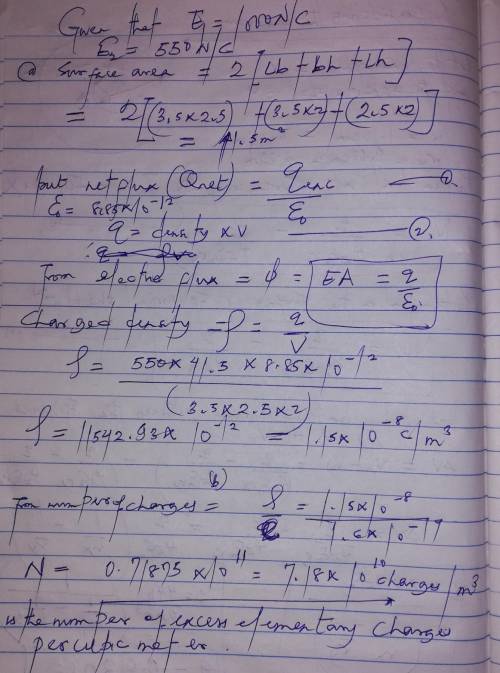 Given that E₁ = 1000N/C
E₂ = 550N/C
(a) Surface area = 2[Lb + bh + Lh]
= 2[(3.5x2.5) + (3.5x2) + (2.5x2)]
= 41.5m²
but net flux (Qnet) = qenc / ε₀ — (1).
ε₀ = 8.85x10⁻¹²
q = density x V — (2).
From electric flux = φ = EA = q / ε₀
Charged density = ρ = q / V
ρ = 550 x 41.5 x 8.85x10⁻¹² / (3.5x2.5x2)
ρ = 11542.93x10⁻¹² = 1.15x10⁻⁸ c/m³
(b)
From number of charges = ρ / e = 1.15x10⁻⁸ / 1.6x10⁻¹⁹
N = 0.71875x10¹¹ = 7.18x10¹⁰ charges/m³
is the number of excess elementary charges
per cubic meter.